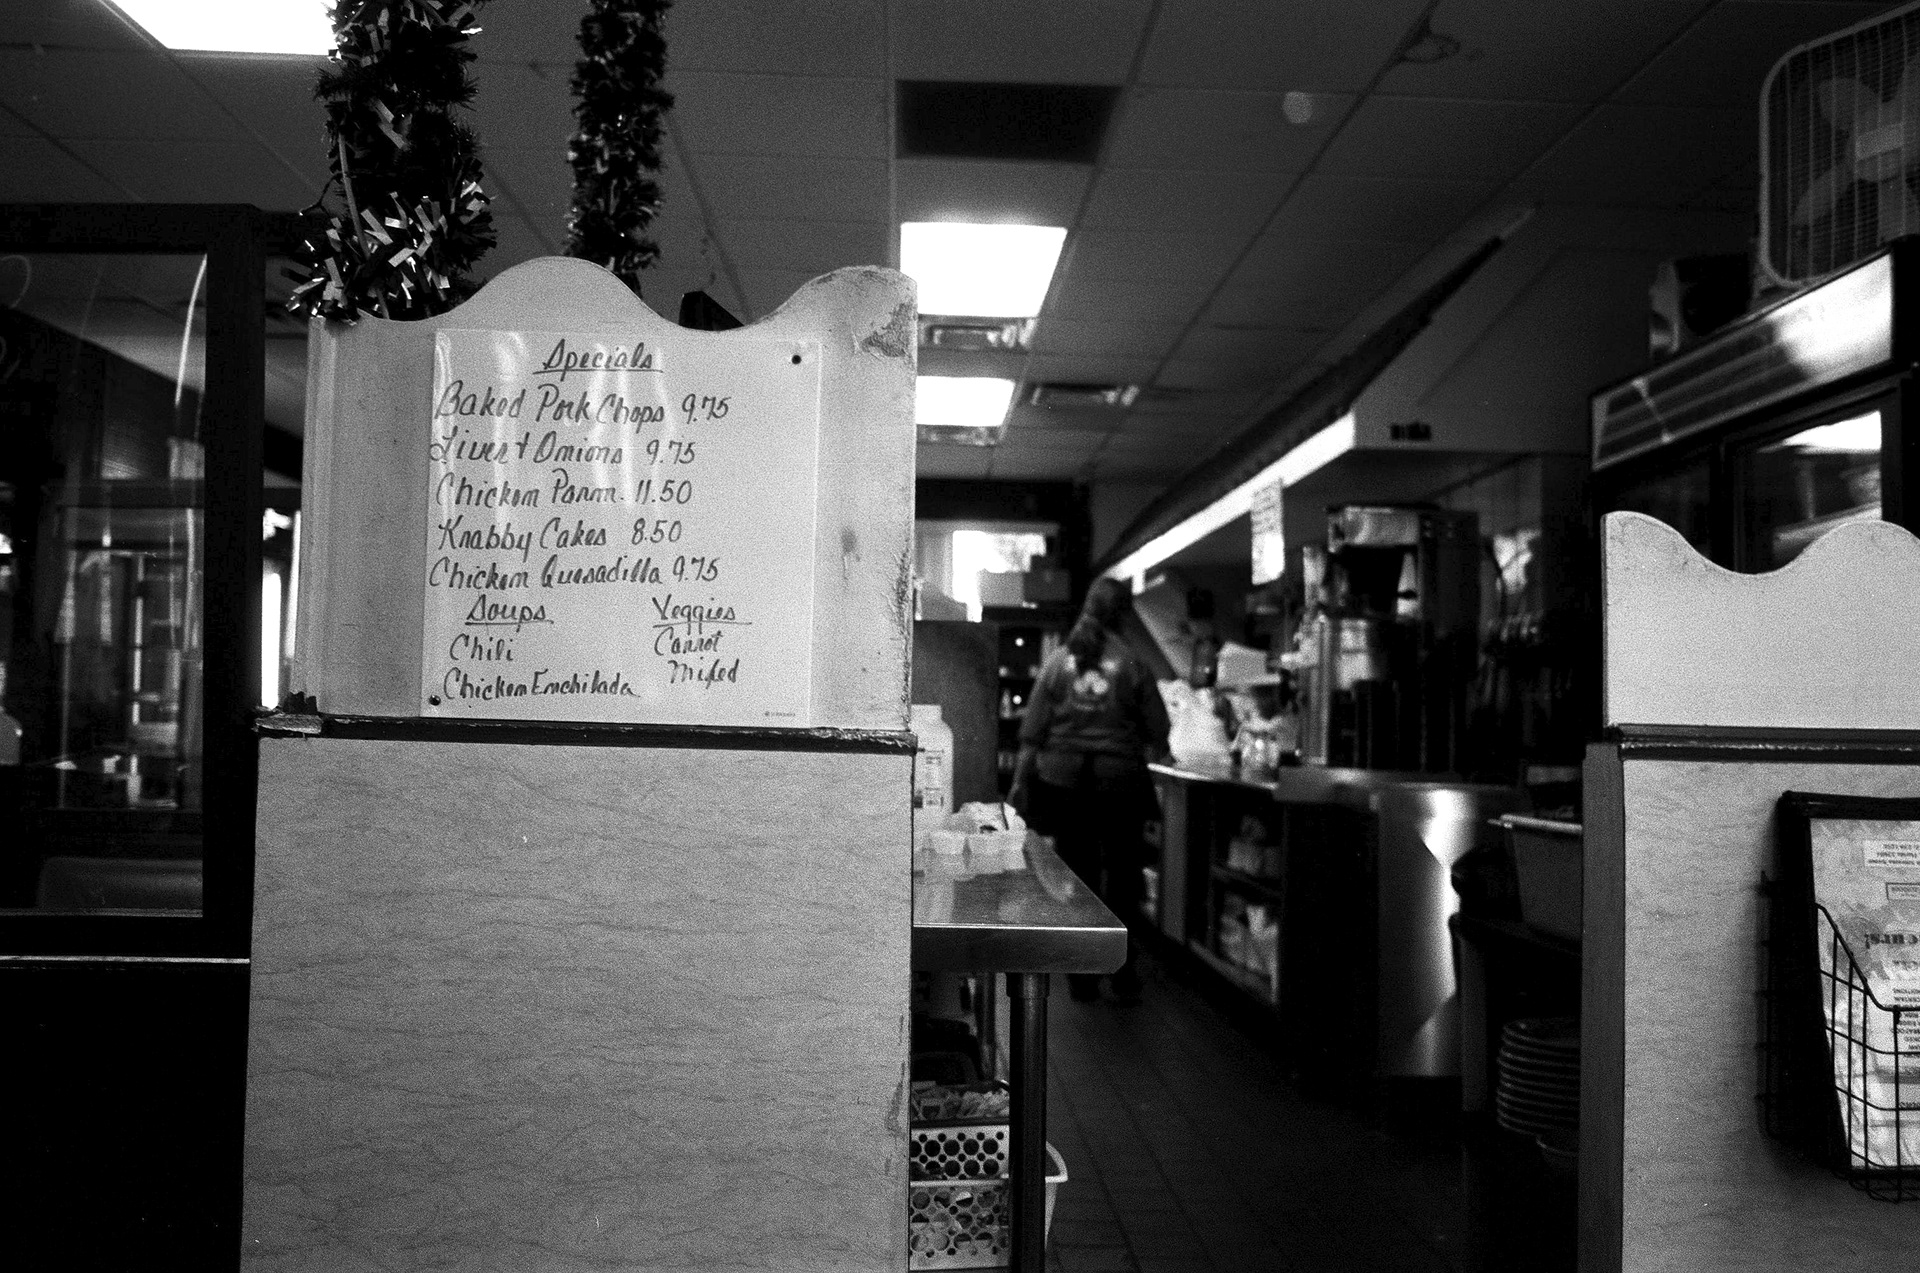 Specials
Baked Pork Chops 9.75
Liver & Onions 9.75
Chicken Parm. 11.50
Knabby Cakes 8.50
Chicken Quesadilla 9.75
Soups Veggies
Chili Carrot
Chicken Enchilada Mixed